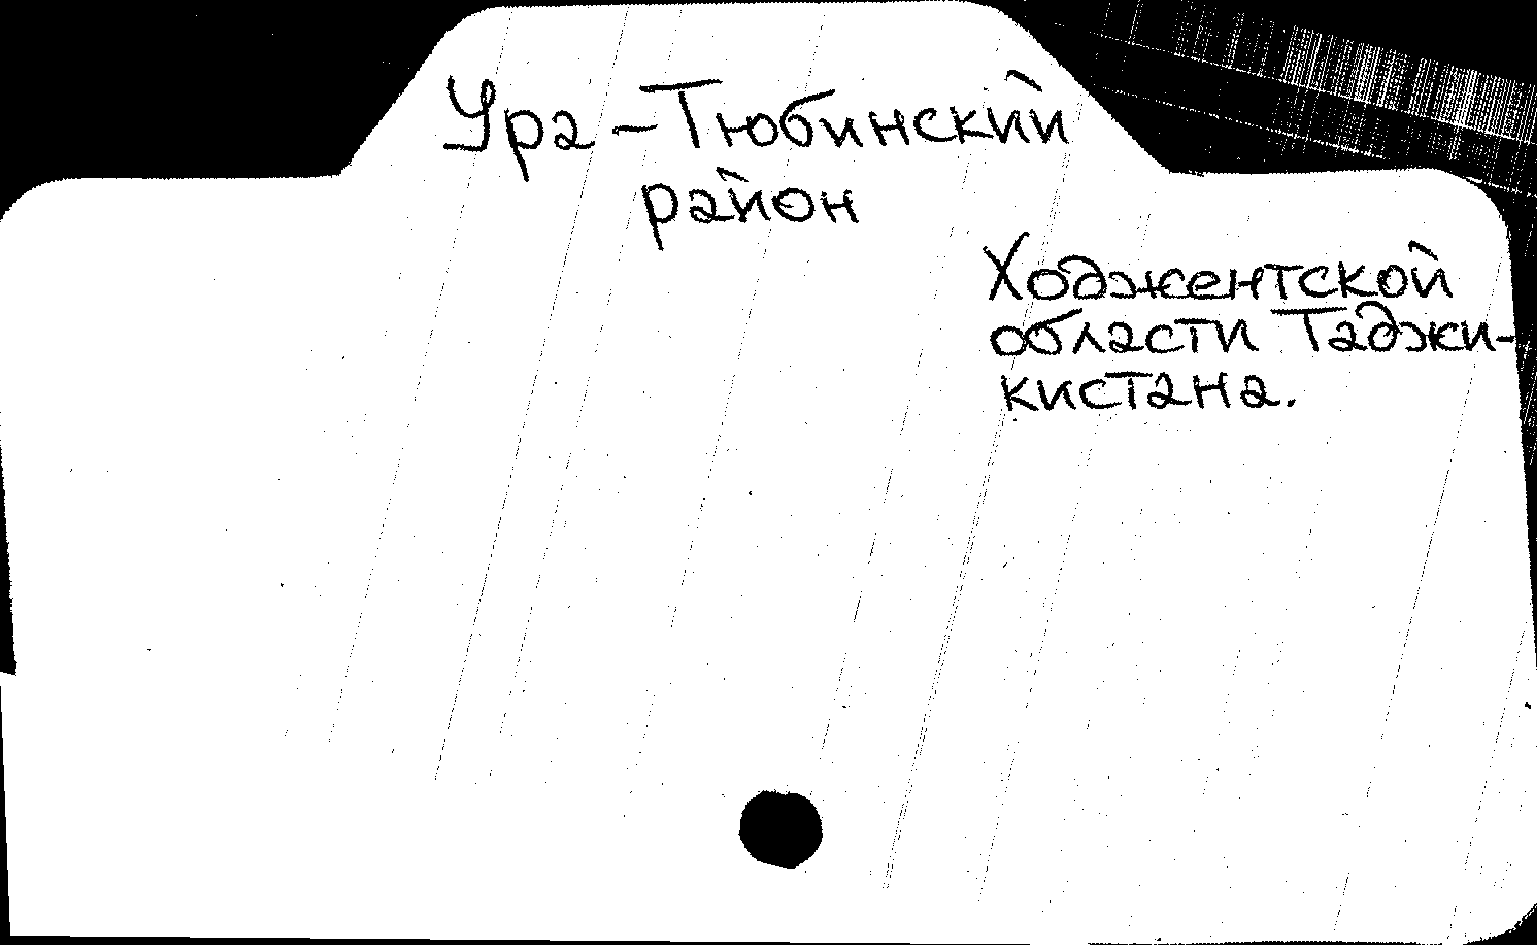 Ура-Тюбинский
район
Ходжентской
области Таджи-
кистана.